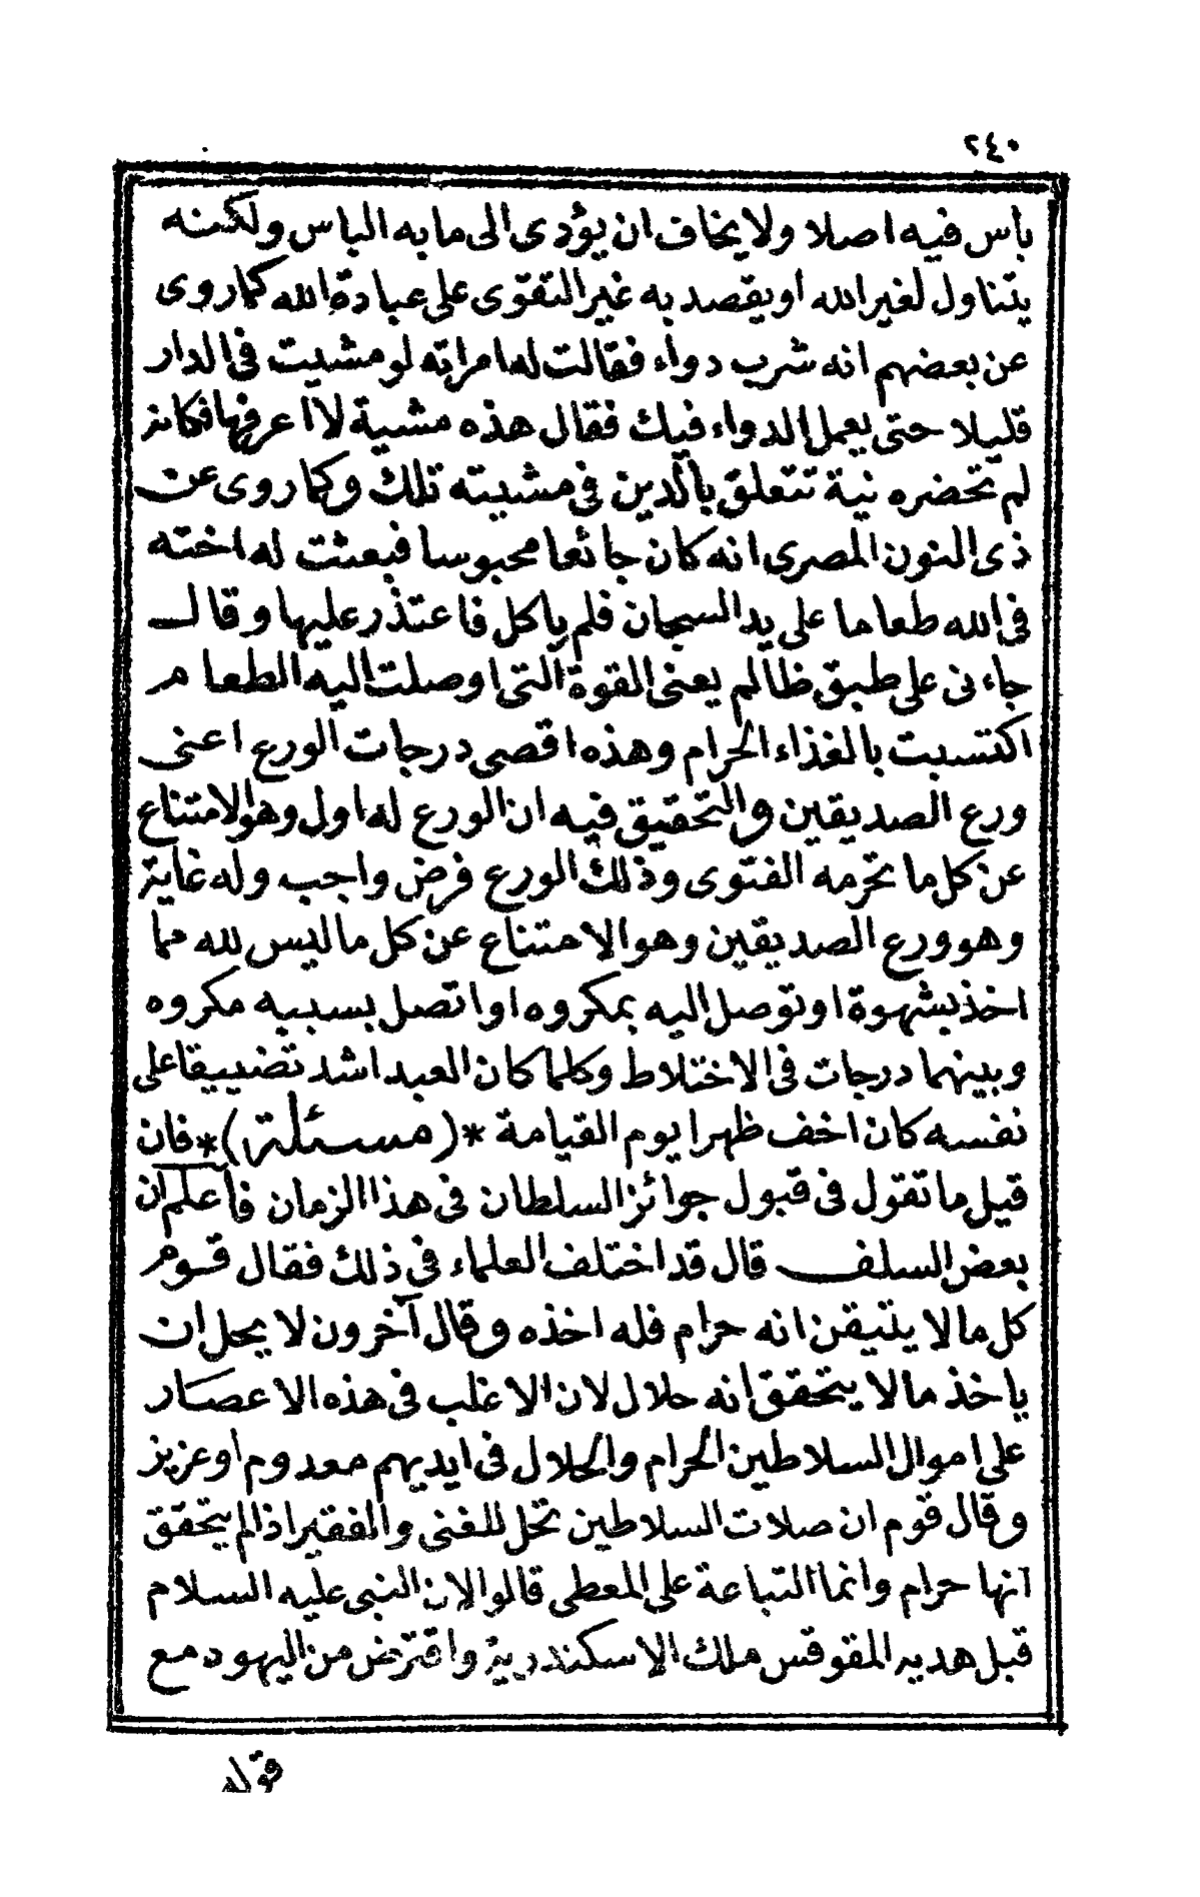 ٢٤٠
بأس فيه اصلا ولا يخاف ان يؤدى الى ما به الباس ولكنه
يتناول لغير الله او يقصد به غير التقوى على عبادة الله كما روى
عن بعضهم انه شرب دواء فقالت له امراته لو مشيت فى الدار
قليلا حتى يعمل الدواء فيك فقال هذه مشية لا اعرفها فكانه
لم تحضره نية تتعلق بالدين فى مشيته تلك وكما روى عن
ذى النون المصرى انه كان جائعا محبوسا فبعثت له اخته
فى الله طعاما على يد السجان فلم ياكل فاعتذر عليها وقال
جاءنى على طبق ظالم يعنى القوة التى اوصلت اليه الطعام
اكتسبت بالغذاء الحرام وهذه اقصى درجات الورع اعنى
ورع الصديقين والتحقيق فيه ان الورع له اول وهو الامتناع
عن كل ما تحرمه الفتوى وذلك الورع فرض واجب وله غاية
وهو ورع الصديقين وهو الامتناع عن كل ما ليس لله مما
اخذ بشهوة او توصل اليه بمكروه او اتصل بسببه مكروه
وبينهما درجات فى الاختلاط وكلما كان العبد اشد تضييقا على
نفسه كان اخف ظهرا يوم القيامة *(مسئلة)* فان
قيل ما تقول فى قبول جوائز السلطان فى هذا الزمان فأعلم ان
بعض السلف قال قد اختلف العلماء فى ذلك فقال قوم
كل ما لا يتيقن انه حرام فله اخذه وقال آخرون لا يحل ان
ياخذ ما لا يتحقق انه حلال لان الاغلب فى هذه الاعصار
على اموال السلاطين الحرام والحلال فى ايديهم معدوم أو عزيز
وقال قوم ان صلات السلاطين تحل للغنى والفقير اذا لم يتحقق
انها حرام وانما التباعة على المعطى قالوا لان النبى عليه السلام
قبل هديه المقوقس ملك الاسكندرية واقترض من اليهود مع
قوله